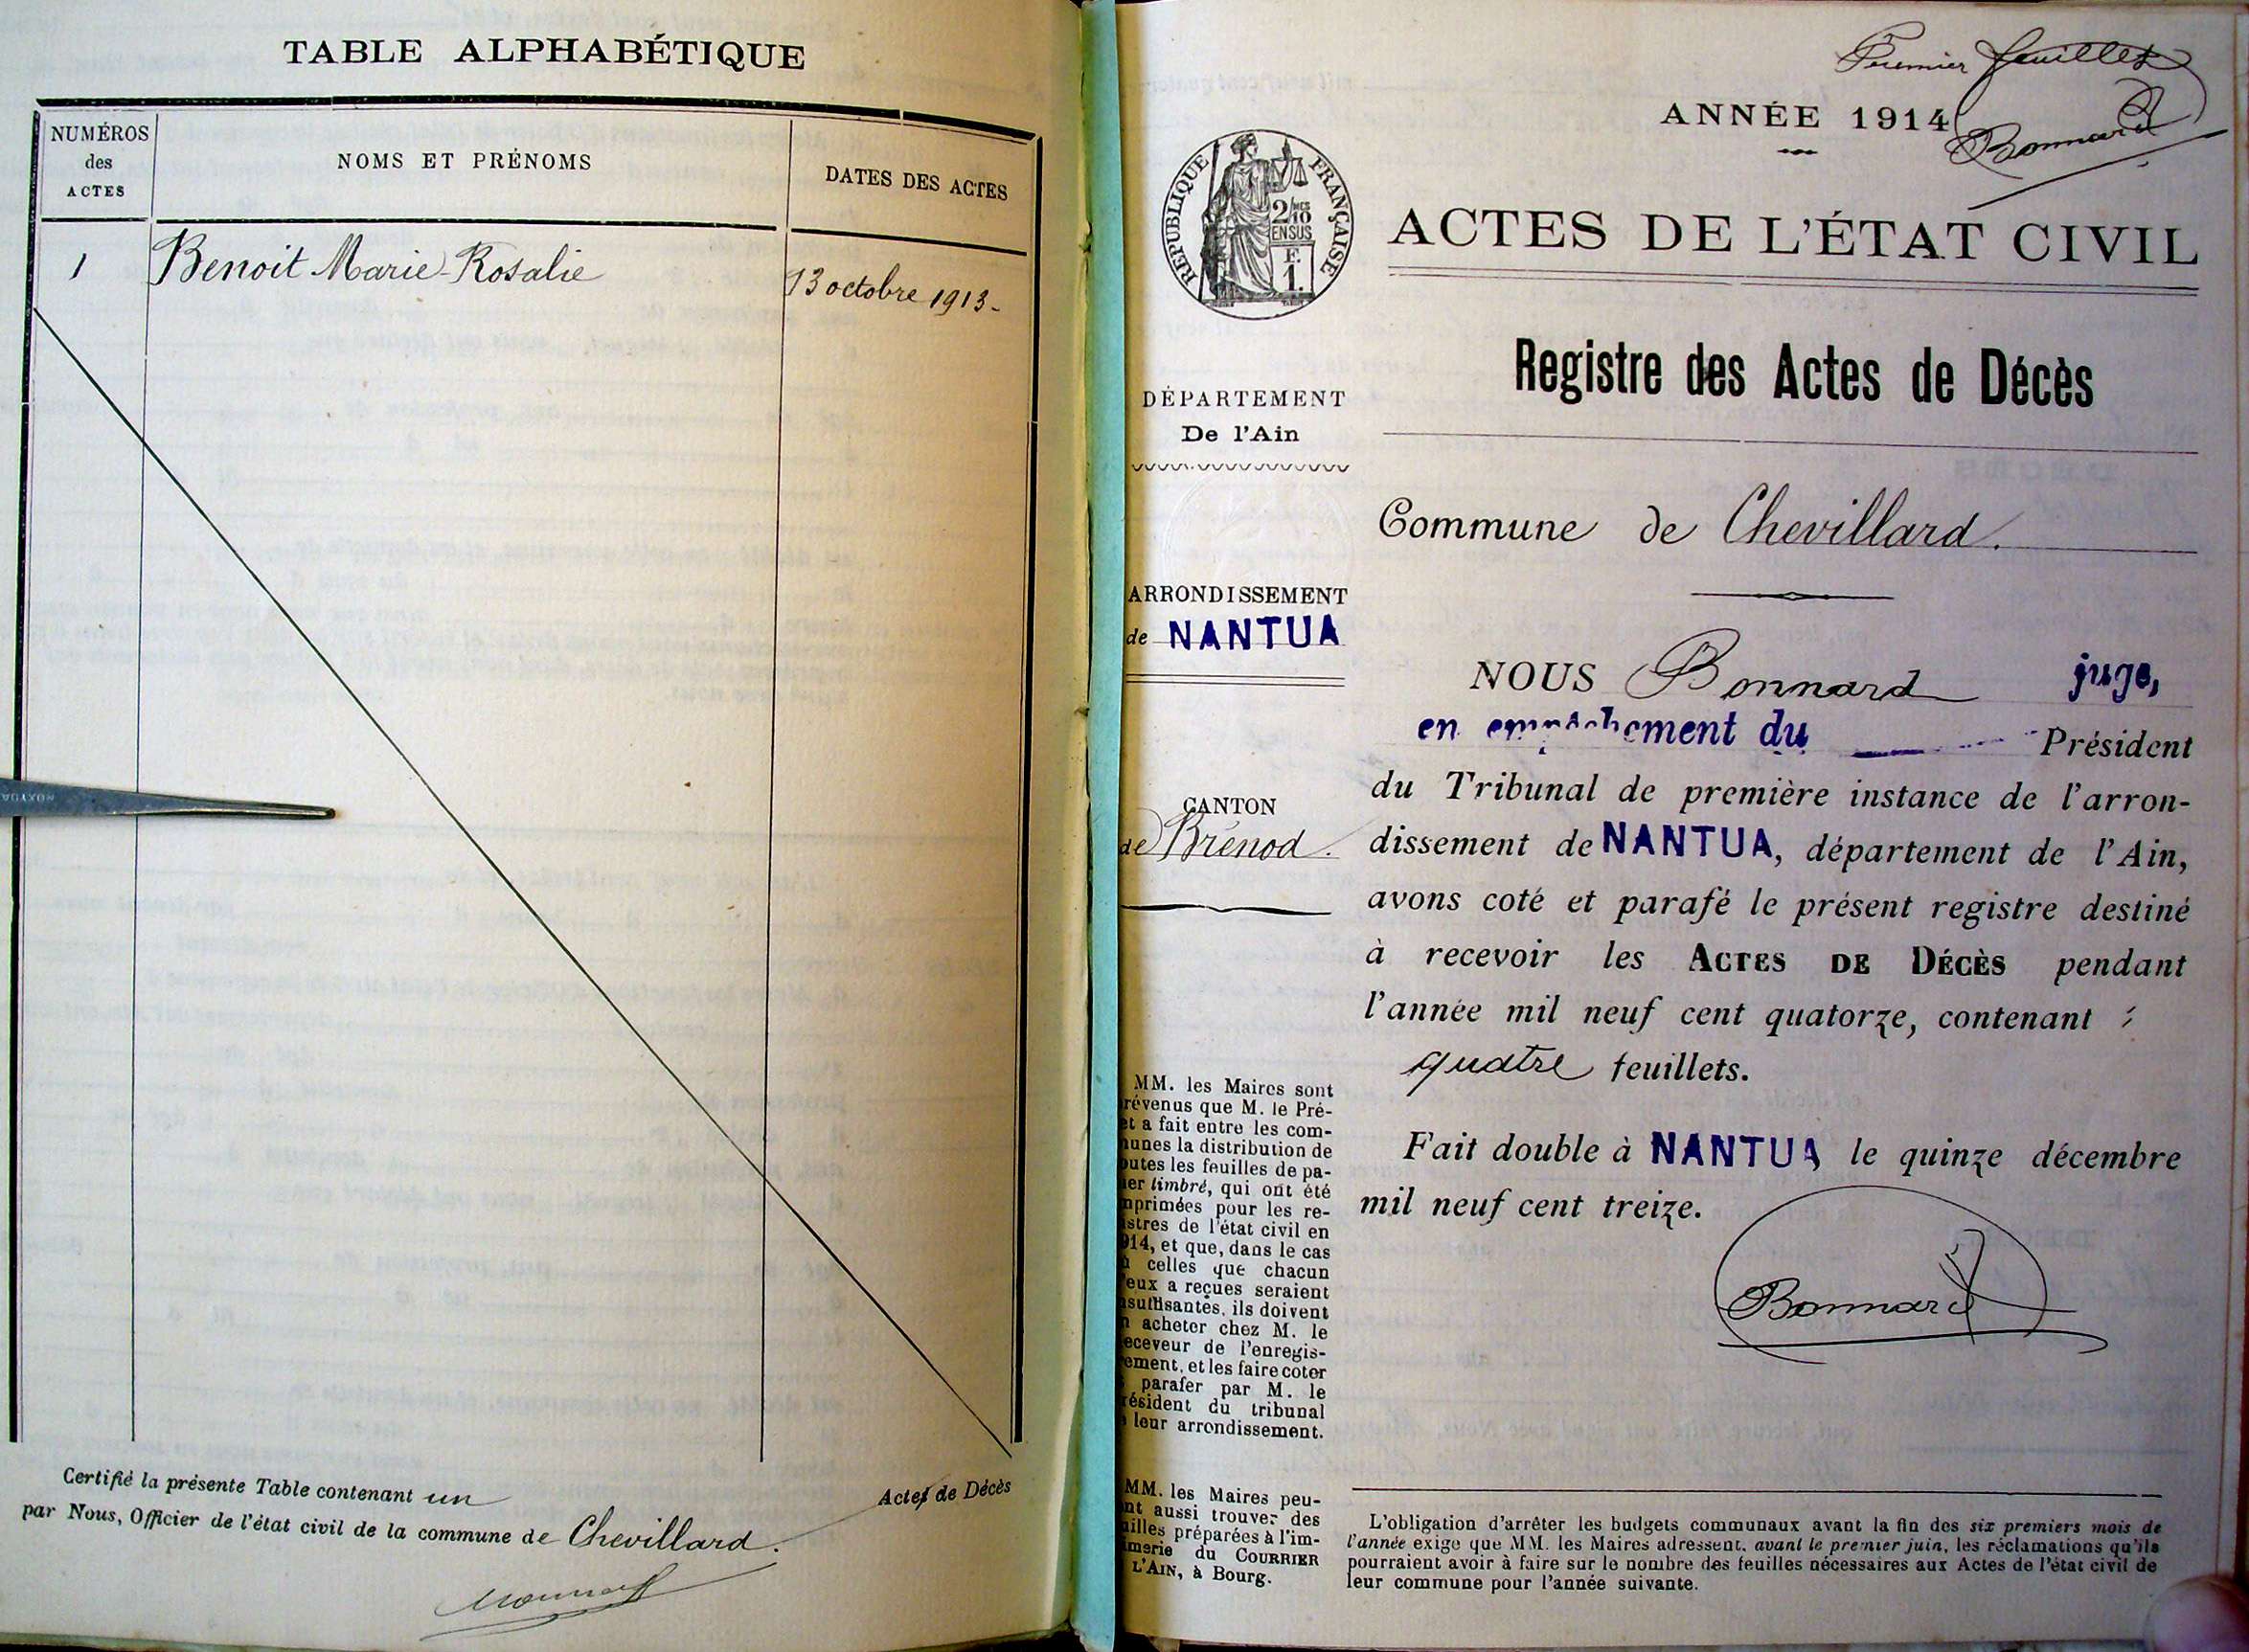 TABLE ALPHABÉTIQUE
NUMÉROS
des
ACTES
NOMS ET PRÉNOMS
DATES DES ACTES
1
Benoit Marie-Rosalie
13 octobre 1913-
Certifié la présente Table contenant un
Actes de Décès
par Nous, Officier de l'état civil de la commune de Chevillard.
Premier feuillet
Bonnard
ANNÉE 1914
RÉPUBLIQUE FRANÇAISE
2/10
MES
EN SUS
E.
1.
ACTES DE L'ÉTAT CIVIL
Registre des Actes de Décès
DÉPARTEMENT
De l'Ain
Commune de Chevillard.
ARRONDISSEMENT
de NANTUA
CANTON
de Brénod.
NOUS Bonnard juge,
en empêchement du Président
du Tribunal de première instance de l'arron-
dissement de NANTUA, département de l'Ain,
avons coté et parafé le présent registre destiné
à recevoir les ACTES DE DÉCÈS pendant
l'année mil neuf cent quatorze, contenant :
quatre feuillets.
Fait double à NANTUA le quinze décembre
mil neuf cent treize.
Bonnard
MM. les Maires sont
révenus que M. le Pré-
et a fait entre les com-
unes la distribution de
outes les feuilles de pa-
ier timbré, qui ont été
mprimées pour les re-
istres de l'état civil en
914, et que, dans le cas
ù celles que chacun
'eux a reçues seraient
nsuffisantes, ils doivent
n acheter chez M. le
eceveur de l'enregis-
ement, et les faire coter
parafer par M. le
résident du tribunal
e leur arrondissement.
MM. les Maires peu-
nt aussi trouver des
uilles préparées à l'im-
imerie du COURRIER
L'AIN, à Bourg.
L'obligation d'arrêter les budgets communaux avant la fin des six premiers mois de
l'année exige que MM. les Maires adressent, avant le premier juin, les réclamations qu'ils
pourraient avoir à faire sur le nombre des feuilles nécessaires aux Actes de l'état civil de
leur commune pour l'année suivante.